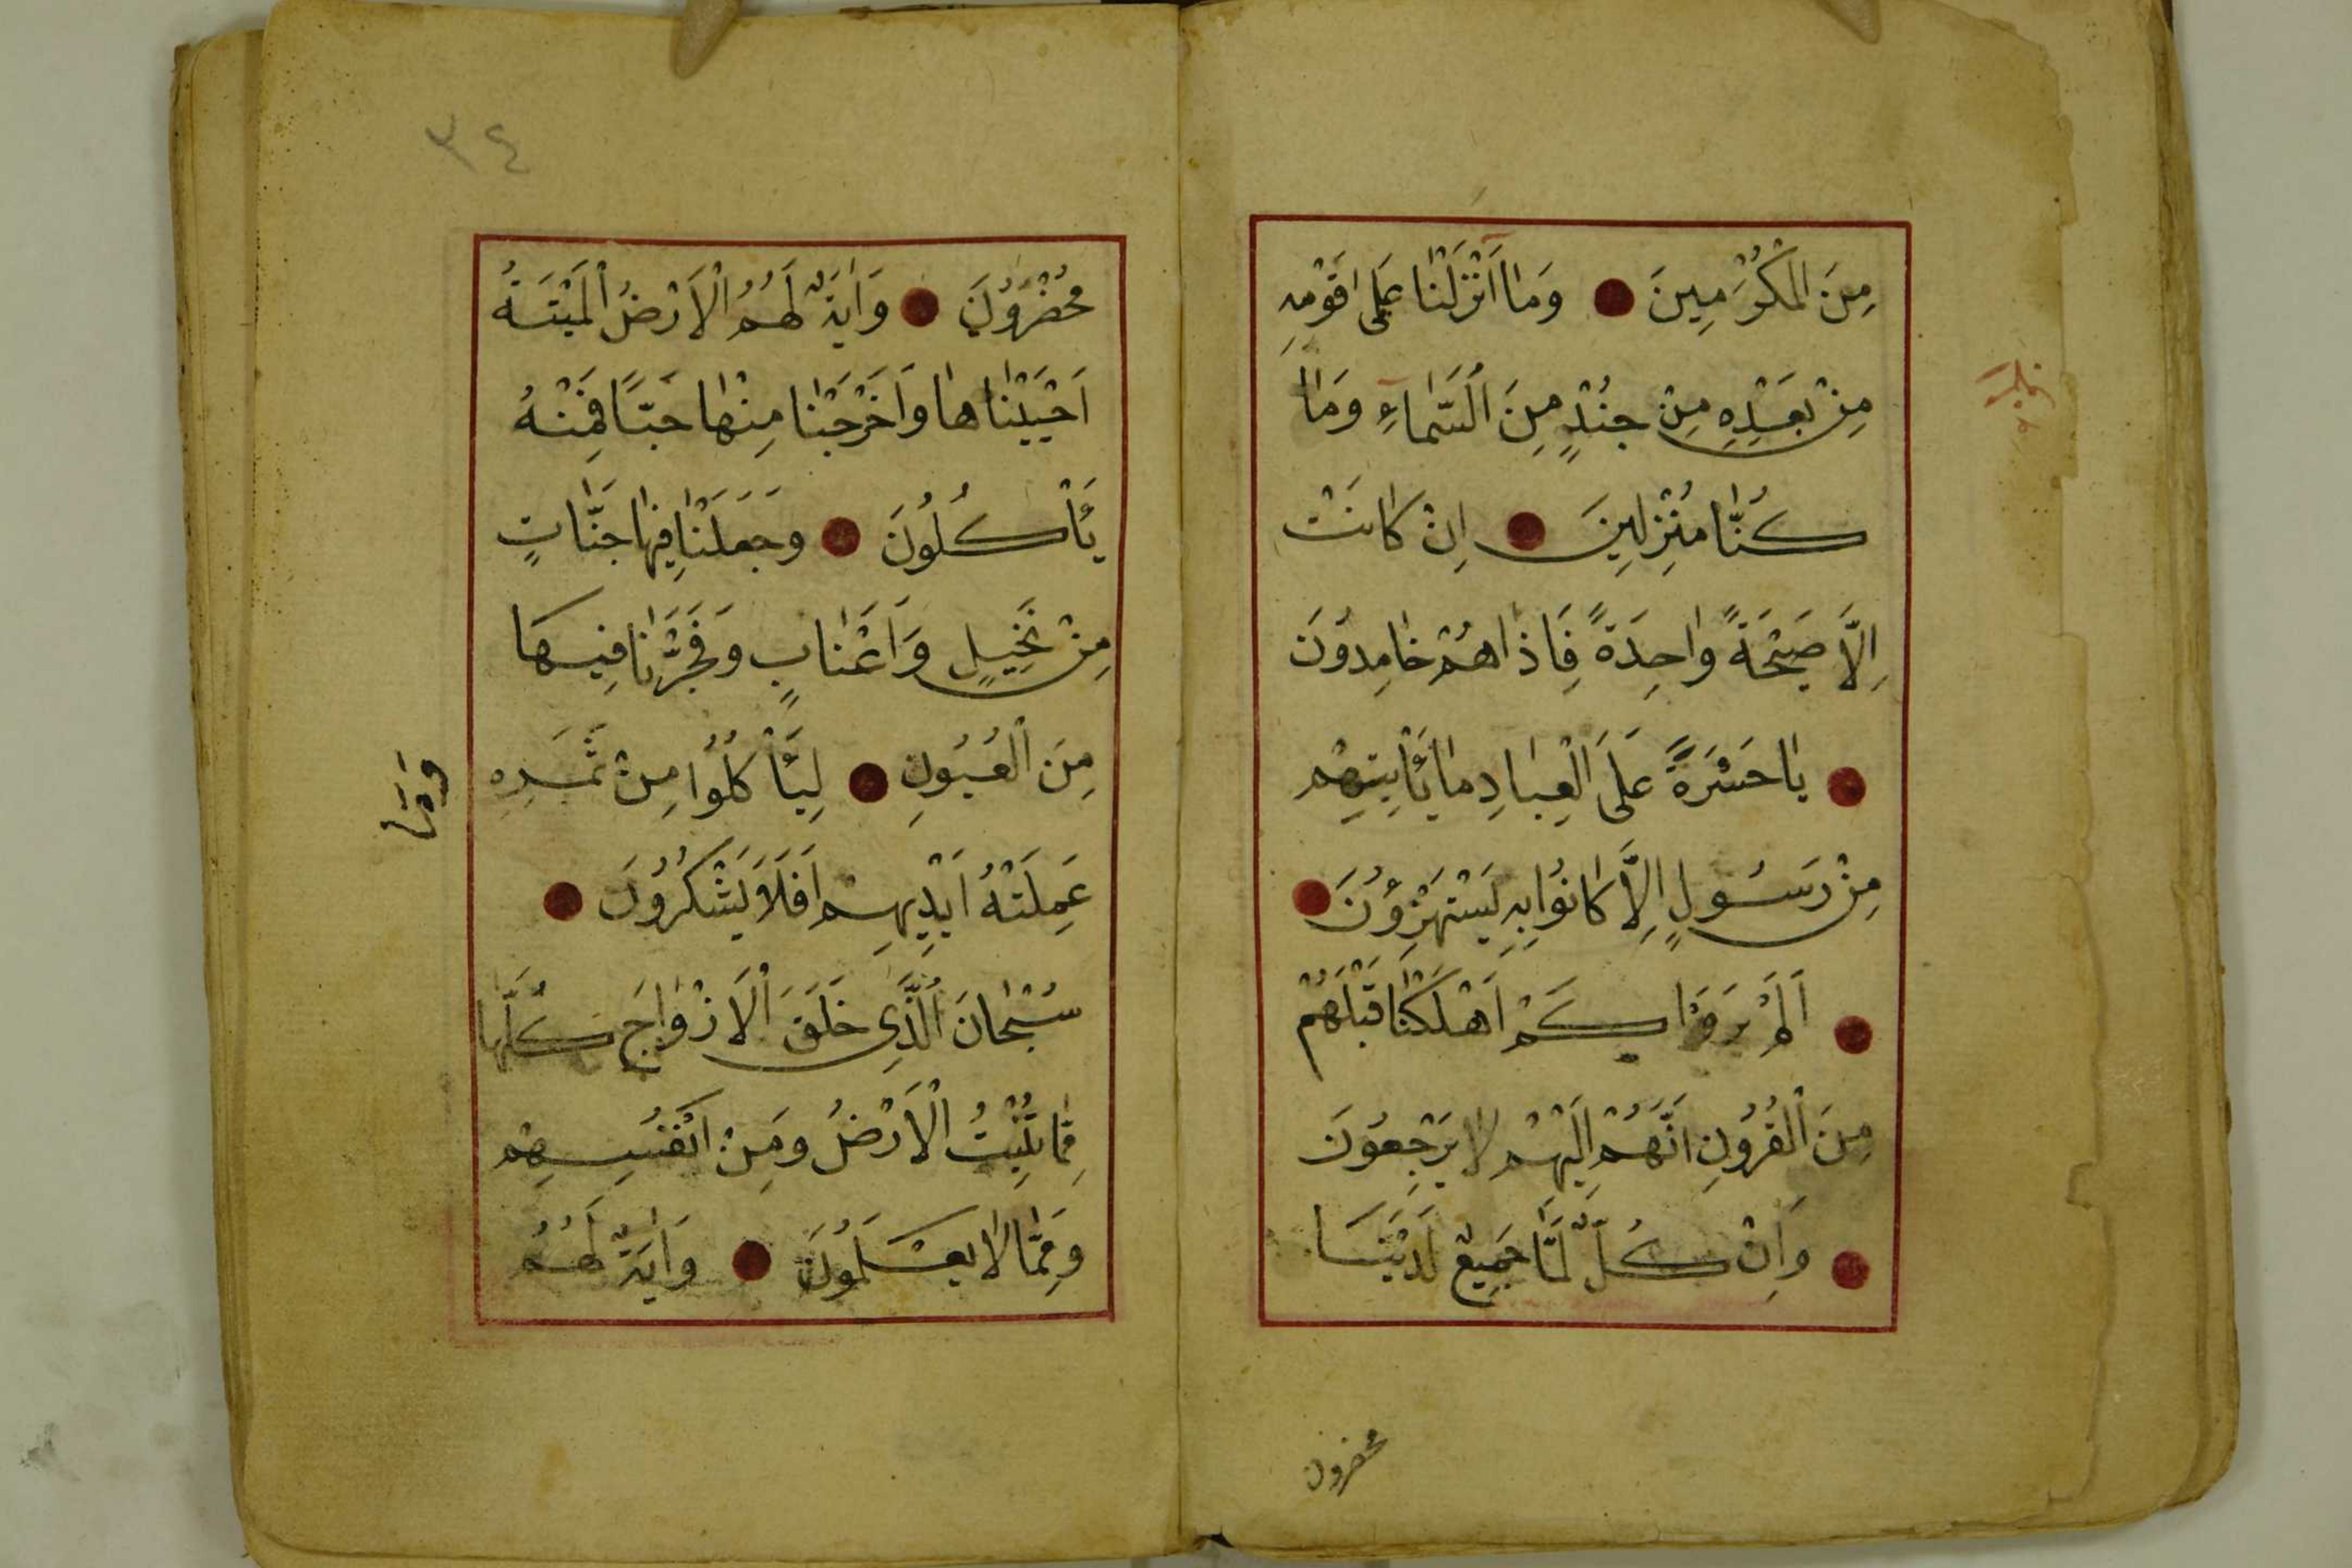 مِنَ الْمُكْرَمِينَ وَمَا اَنْزَلْنَا عَلٰى قَوْمِهِ
مِنْ بَعْدِهِ مِنْ جُنْدٍ مِنَ السَّمَاءِ وَمَا
كُنَّا مُنْزِلِينَ اِنْ كَانَتْ
اِلَّا صَيْحَةً وَاحِدَةً فَاِذَا هُمْ خَامِدُونَ
يَا حَسْرَةً عَلَى الْعِبَادِ مَا يَأْتِيهِمْ
مِنْ رَسُولٍ اِلَّا كَانُوا بِهِ يَسْتَهْزِؤُنَ
اَلَمْ يَرَوْا كَمْ اَهْلَكْنَا قَبْلَهُمْ
مِنَ الْقُرُونِ اَنَّهُمْ اِلَيْهِمْ لَا يَرْجِعُونَ
وَاِنْ كُلٌّ لَمَّا جَمِيعٌ لَدَيْنَا
محضرون
٣٤
مُحْضَرُونَ وَاٰيَةٌ لَهُمُ الْاَرْضُ الْمَيْتَةُ
اَحْيَيْنَاهَا وَاَخْرَجْنَا مِنْهَا حَبًّا فَمِنْهُ
يَأْكُلُونَ وَجَعَلْنَا فِيهَا جَنَّاتٍ
مِنْ نَخِيلٍ وَاَعْنَابٍ وَفَجَّرْنَا فِيهَا
مِنَ الْعُيُونِ لِيَأْكُلُوا مِنْ ثَمَرِهِ
وَمَا
عَمِلَتْهُ اَيْدِيهِمْ اَفَلَا يَشْكُرُونَ
سُبْحَانَ الَّذِى خَلَقَ الْاَزْوَاجَ كُلَّهَا
مِمَّا تُنْبِتُ الْاَرْضُ وَمِنْ اَنْفُسِهِمْ
وَمِمَّا لَا يَعْلَمُونَ وَاٰيَةٌ لَهُمُ